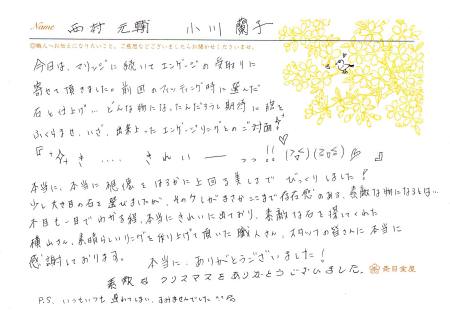 Name 西村 元輔 小川 蘭子
◎職人へお伝えになりたいこと、ご感想などございましたらお聞かせくださいませ。
今日は、マリッジに続いてエンゲージの受取りに
寄せて頂きました。前回のフィッティング時に選んだ
石と仕上げ… どんな物になったんだろうと期待に胸を
ふくらませ、いざ、出来上ったエンゲージリングとのご対面!
『・・き ・・・・ きれいーーっっ!! (≧≦)(≧≦) 』
本当に、本当に想像をはるかに上回る美しさでびっくりしました!
少し大き目の石を選びましたが、その少しがまさかここまで存在感のある、素敵な物になるとは…
木目も一目でわかる程、本当にきれいに出ており、素敵な石を探してくれた
横山さん、素晴らしいリングを作り上げて頂いた職人さん、スタッフの皆さんに本当に
感謝しております。 本当に、ありがとうございました!
素敵なクリスマスをありがとうございました。
杢目金屋
P.S. いつもいつも遅れてしまい、すみませんでした